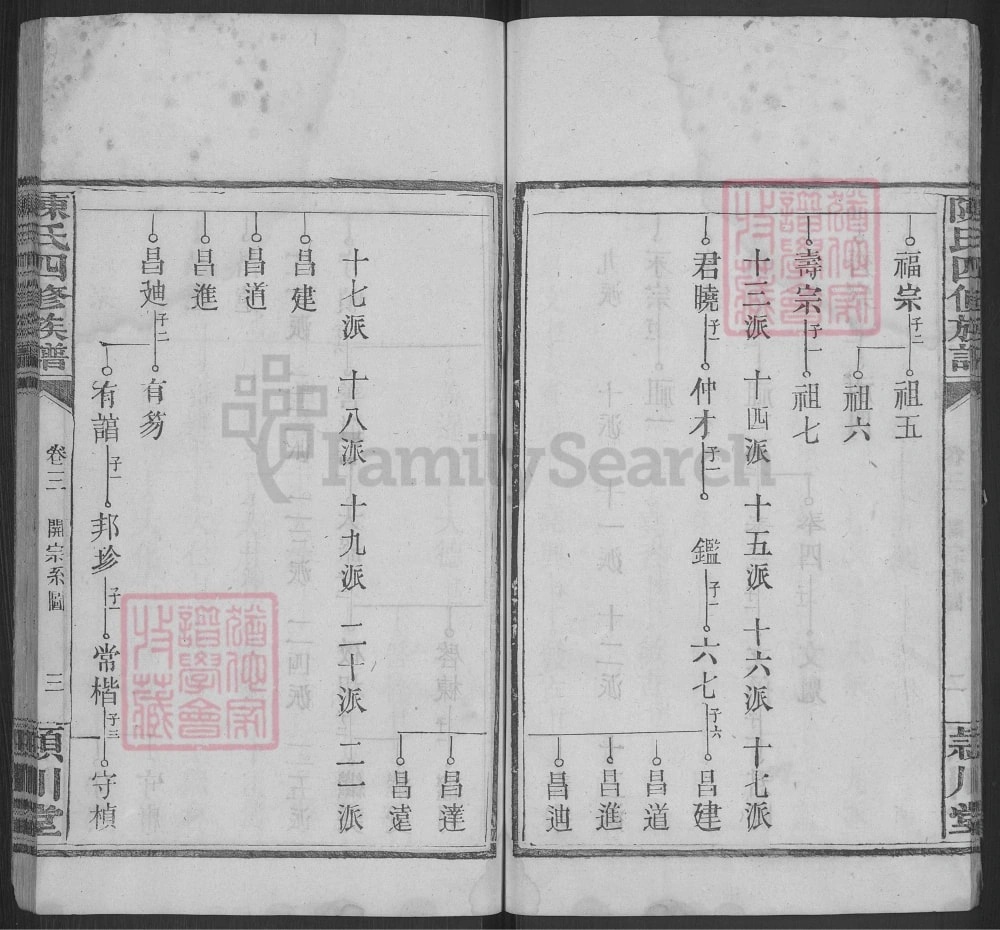 陳氏四修族譜
潁川堂
福宗 子二 祖五
祖六
壽宗 子一 祖七
十三派 十四派 十五派 十六派 十七派
君曉 子一 仲才 子一 鑑 子一 六七 子六 昌建
昌道
昌進
昌迪
昌達
昌遠
十七派 十八派 十九派 二十派 二一派
昌建
昌道
昌進
昌迪 子二 有芴
有誩 子一 邦珍 子一 常楷 子二 守楨
陳氏四修族譜
卷三 開宗系圖 三
潁川堂
FamilySearch